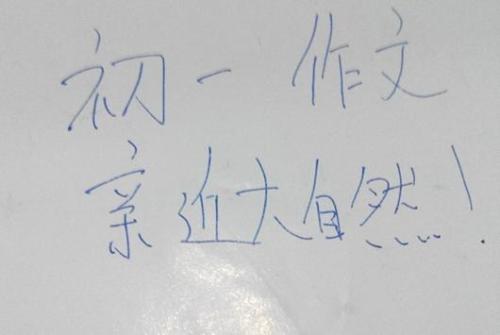 初一 作文
亲近大自然!